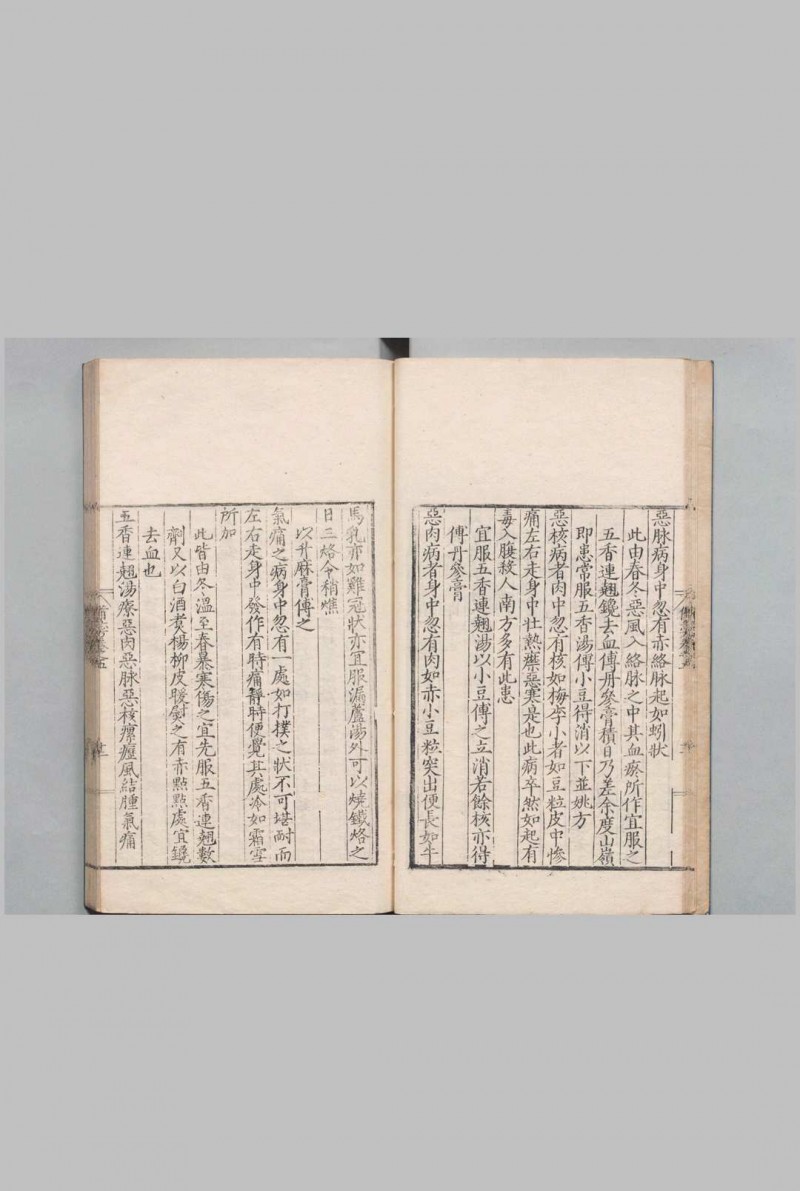 惡脉病身中忽有赤絡脉起如蚓狀
此由春冬惡風入絡脉之中其血瘀所作宜服之
五香連翹鑱去血傅丹參膏積日乃差余度山嶺
即患常服五香湯傅小豆得消以下並姚方
惡核病者肉中忽有核如梅李小者如豆粒皮中慘
痛左右走身中壯熱㾕惡寒是也此病卒然如起有
毒入腹殺人南方多有此患
宜服五香連翹湯以小豆傅之立消若餘核亦得
傅丹參膏
惡肉病者身中忽有肉如赤小豆粒突出便長如牛
馬乳亦如雞冠狀亦宜服漏蘆湯外可以燒鐵烙之
日三烙令稍燋
以升麻膏傅之
氣痛之病身中忽有一處如打撲之狀不可堪耐而
左右走身中發作有時痛靜時便覺其處冷如霜雪
所加
此皆由冬溫至春暴寒傷之宜先服五香連翹數
劑又以白酒煑楊柳皮暖熨之有赤點點處宜鑱
去血也
五香連翹湯療惡肉惡脉惡核瘰癧風結腫氣痛